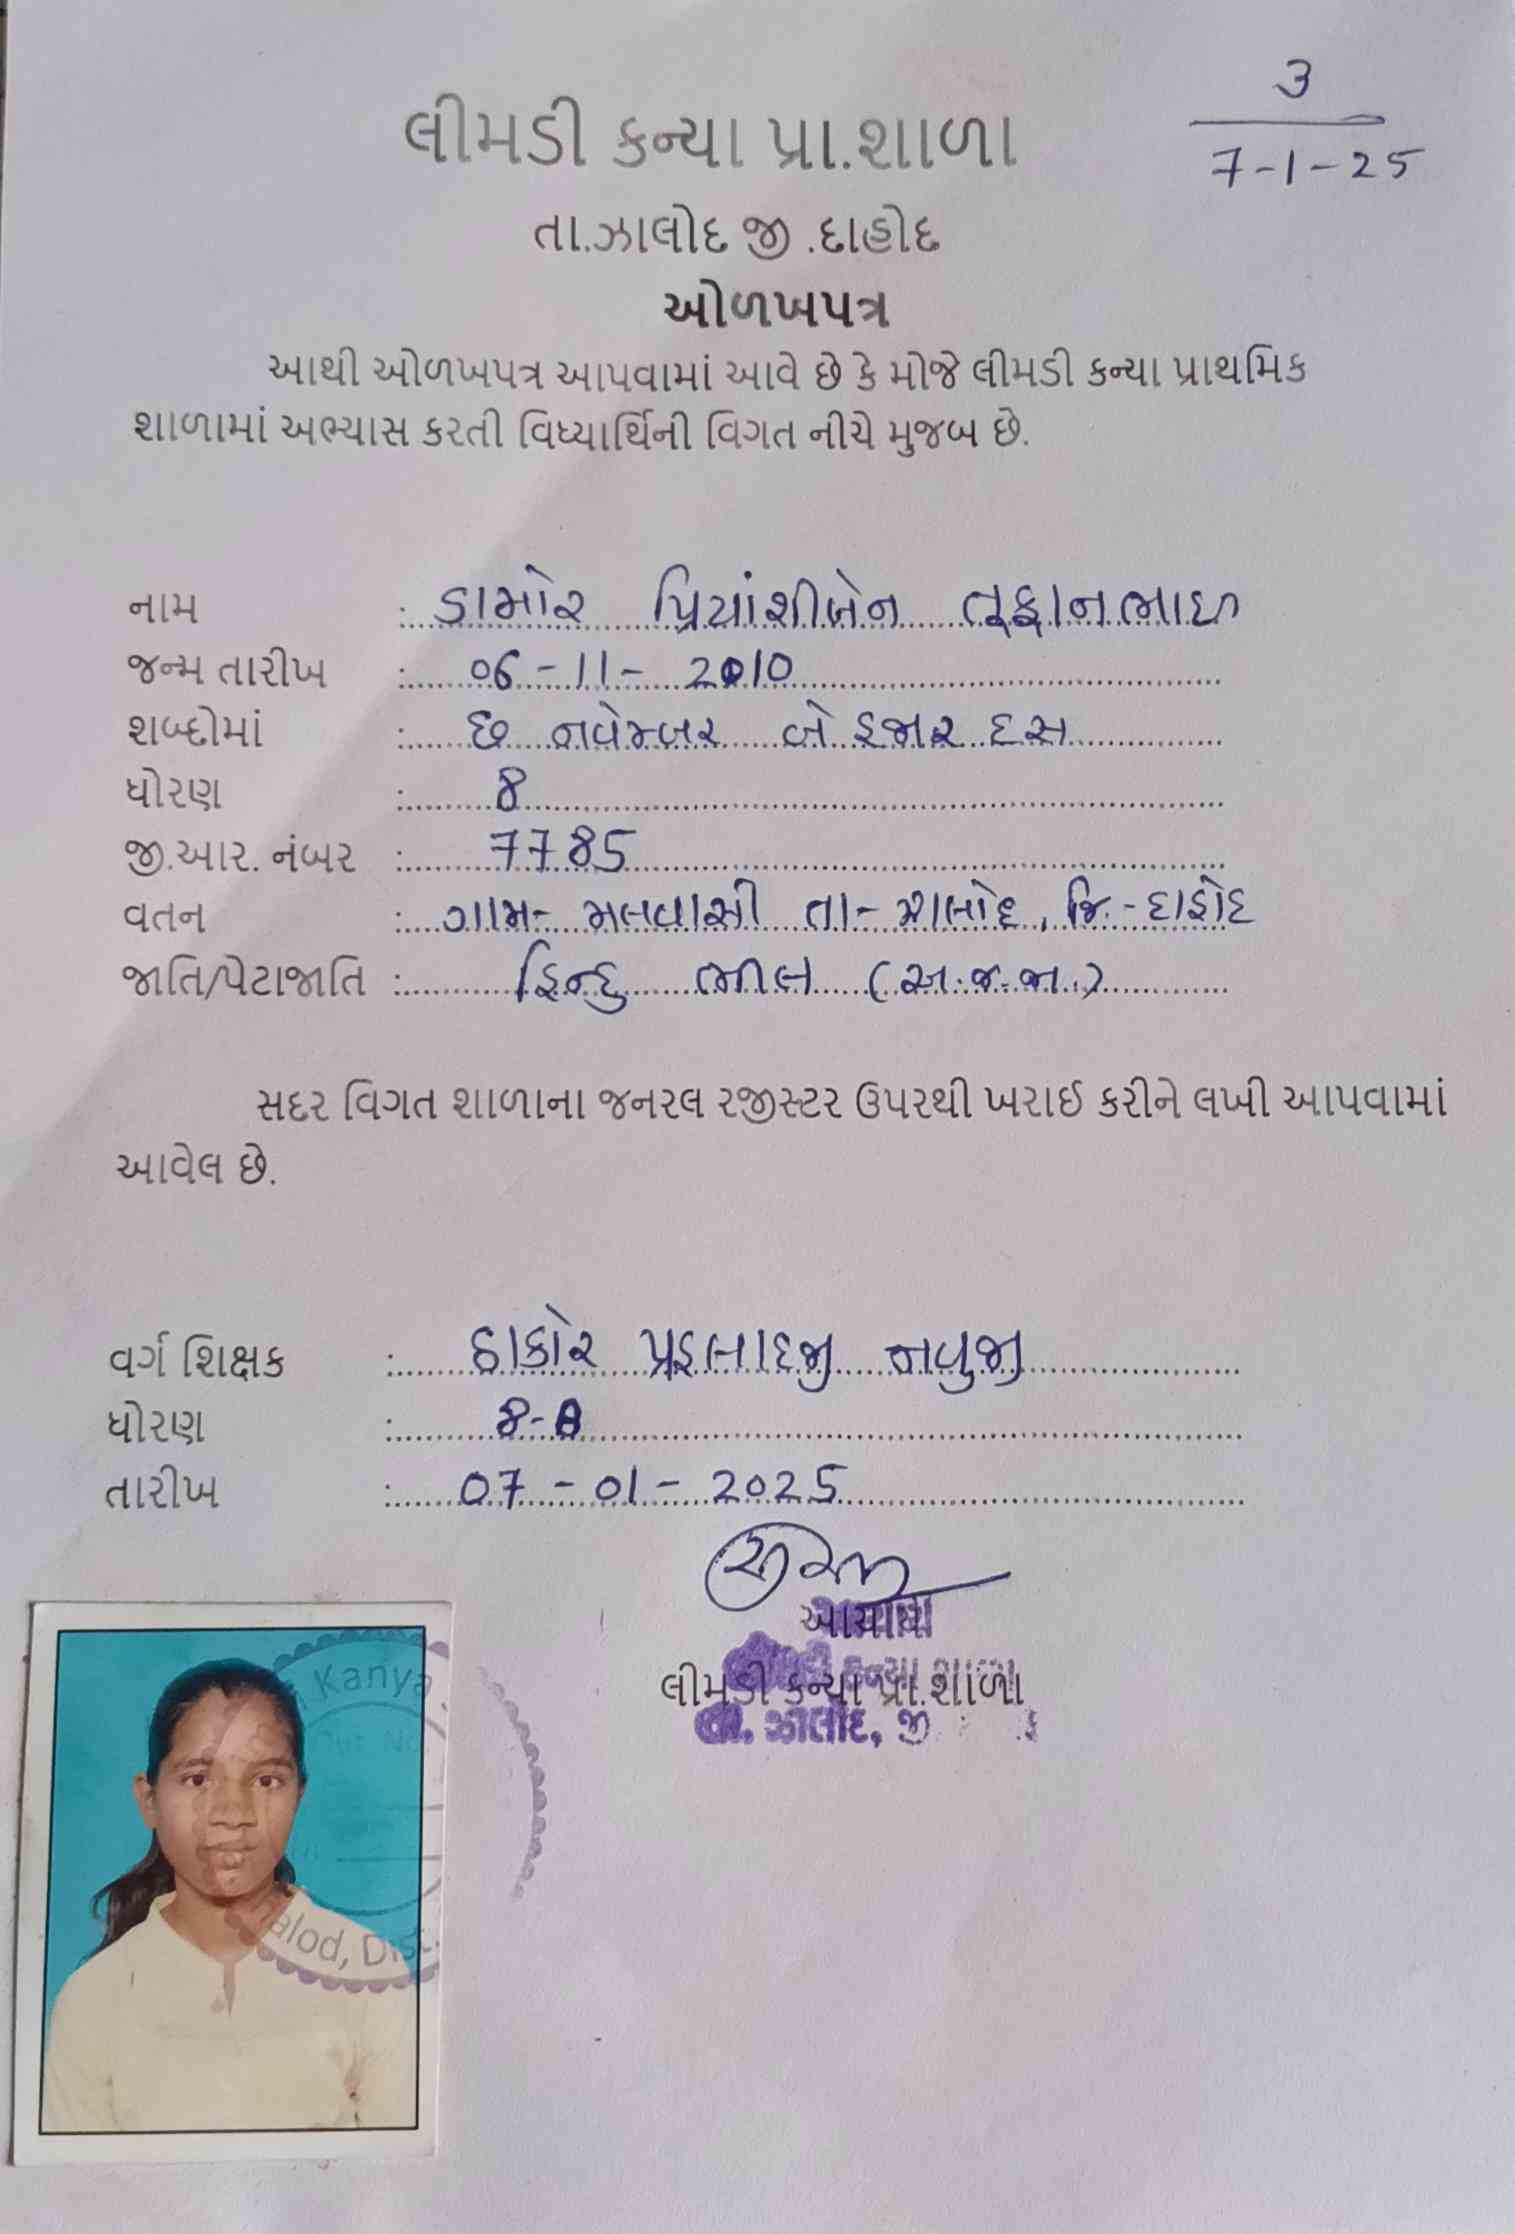 3
7-1-25
લીમડી કન્યા પ્રા.શાળા
તા.ઝાલોદ જી .દાહોદ
ઓળખપત્ર
આથી ઓળખપત્ર આપવામાં આવે છે કે મોજે લીમડી કન્યા પ્રાથમિક
શાળામાં અભ્યાસ કરતી વિધ્યાર્થિની વિગત નીચે મુજબ છે.
નામ : ડામોર પ્રિયાંશીબેન તૂફાનભાઇ
જન્મ તારીખ : 06-11-2010
શબ્દોમાં : છ નવેમ્બર બે હજાર દસ
ધોરણ : 8
જી.આર. નંબર : 7785
વતન : ગામ- મલવાસી તા- ઝાલોદ, જિ.-દાહોદ
જાતિ/પેટાજાતિ : હિન્દુ ભીલ (અ.જ.જા.)
સદર વિગત શાળાના જનરલ રજીસ્ટર ઉપરથી ખરાઈ કરીને લખી આપવામાં
આવેલ છે.
વર્ગ શિક્ષક : ઠાકોર પ્રહલાદજી નવુજી
ધોરણ : 8-B
તારીખ : 07-01-2025
આચાર્ય
લીમડી કન્યા પ્રા.શાળા
તા. ઝાલોદ, જી
Kanya
halod, Dist.